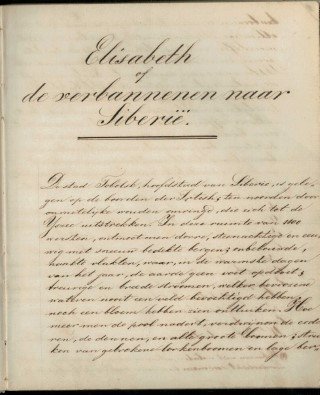 Elisabeth
of
de verbannenen naar
Siberië.
De stad Tobolsk, hoofdstad van Siberie, is gele-
gen op de boorden der Irtish; ten noorden door
onmetelijke wouden omringd, die zich tot de
uitstrekken. In deze ruimte van 1100
wersten, ontmoet men dorre, steenachtige en eeu-
wig met sneeuw bedekte bergen; onbebouwde,
naakte vlakten, waar, in de warmste dagen
van het jaar, de aarde geen voet opdooit;
treurige en breede stroomen, welker bevrozene
wateren nooit een veld bevochtigd hebben,
noch een bloem hebben zien ontluiken. Hoe
meer men de pool nadert, verdwijnen de cede-
ren, de dennen, en alle groote boomen; strui-
ken van gebrokene lorkenboomen en lage ber-